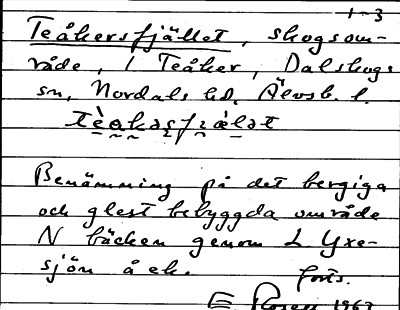 1-3
Teåkersfjället, skogsom-
råde, i Teåker, Dalskogs
sn, Nordals hd, Älvsb. l.
Benämning på det bergiga
och glest bebyggda område
N bäcken genom L Yxe-
sjön å ek.
forts.
E. Rosen 1963